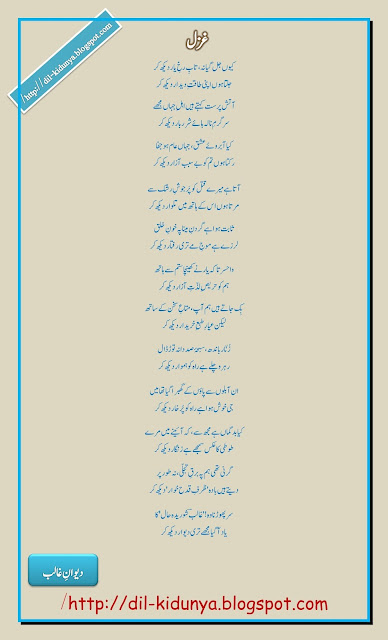 http://dil-kidunya.blogspot.com
غزل
کیوں جل گیا نہ، تابِ رخِ یار دیکھ کر
جلتا ہوں اپنی طاقتِ دیدار دیکھ کر
آتش پرست کہتے ہیں اہلِ جہاں مجھے
سرگرمِ نالہ ہائے شرر بار دیکھ کر
کیا آبروئے عشق، جہاں عام ہو جفا
رکتا ہوں تم کو بے سبب آزار دیکھ کر
آتا ہے میرے قتل کو پر جوشِ رشک سے
مرتا ہوں اس کے ہاتھ میں تلوار دیکھ کر
ثابت ہوا ہے گردنِ مینا پہ خونِ خلق
لرزے ہے موجِ مے تری رفتار دیکھ کر
وا حسرتا کہ یار نے کھینچا ستم سے ہاتھ
ہم کو حریصِ لذتِ آزار دیکھ کر
بِک جاتے ہیں ہم آپ، متاعِ سخن کے ساتھ
لیکن عیارِ طبعِ خریدار دیکھ کر
زُنّار باندھ، سبحۂ صد دانہ توڑ ڈال
رہرو چلے ہے راہ کو ہموار دیکھ کر
ان آبلوں سے پاؤں کے گھبرا گیا تھا میں
جی خوش ہوا ہے راہ کو پُر خار دیکھ کر
کیا بد گماں ہے مجھ سے، کہ آئینے میں مرے
طوطی کا عکس سمجھے ہے زنگار دیکھ کر
گرنی تھی ہم پہ برقِ تجلّی، نہ طور پر
دیتے ہیں بادہ 'ظرفِ قدح خوار' دیکھ کر
سر پھوڑنا وہ! 'غالب شوریدہ حال' کا
یاد آ گیا مجھے تری دیوار دیکھ کر
دیوانِ غالب
/http://dil-kidunya.blogspot.com